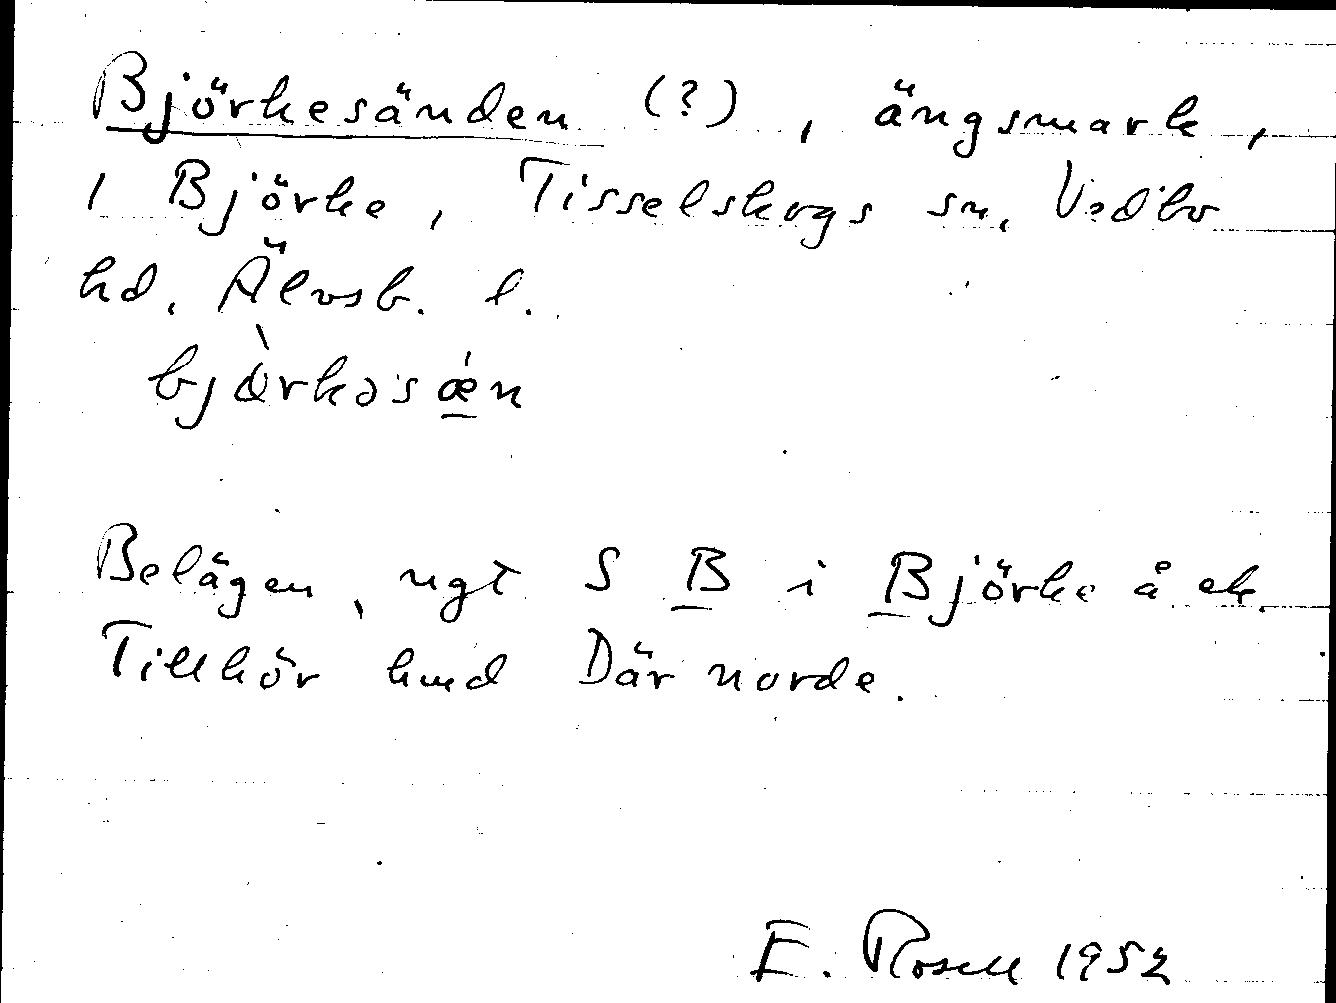 Björkesänden (?), ängsmark,
i Björke, Tisselskogs sn, Vedbo
hd, Älvsb. l.
bjòrkəsǽn
Belägen, ngt S B i Björke å ek.
Tillhör hmd Där norde.
E. Rosell 1952